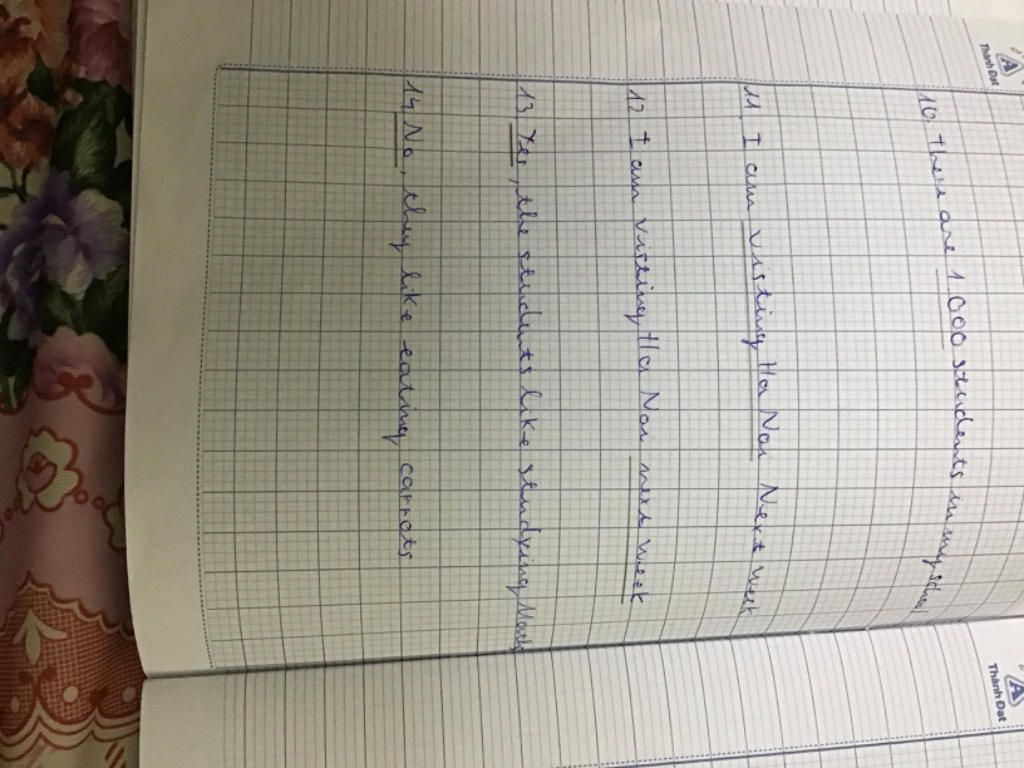 Thành Đạt
10. There are 1.000 students in my school
11. I am visting Ha Noi Next week
12. I am visting Ha Noi next week
13. Yes, the students like studying Math
14. No, they like eating carrots
Thành Đạt